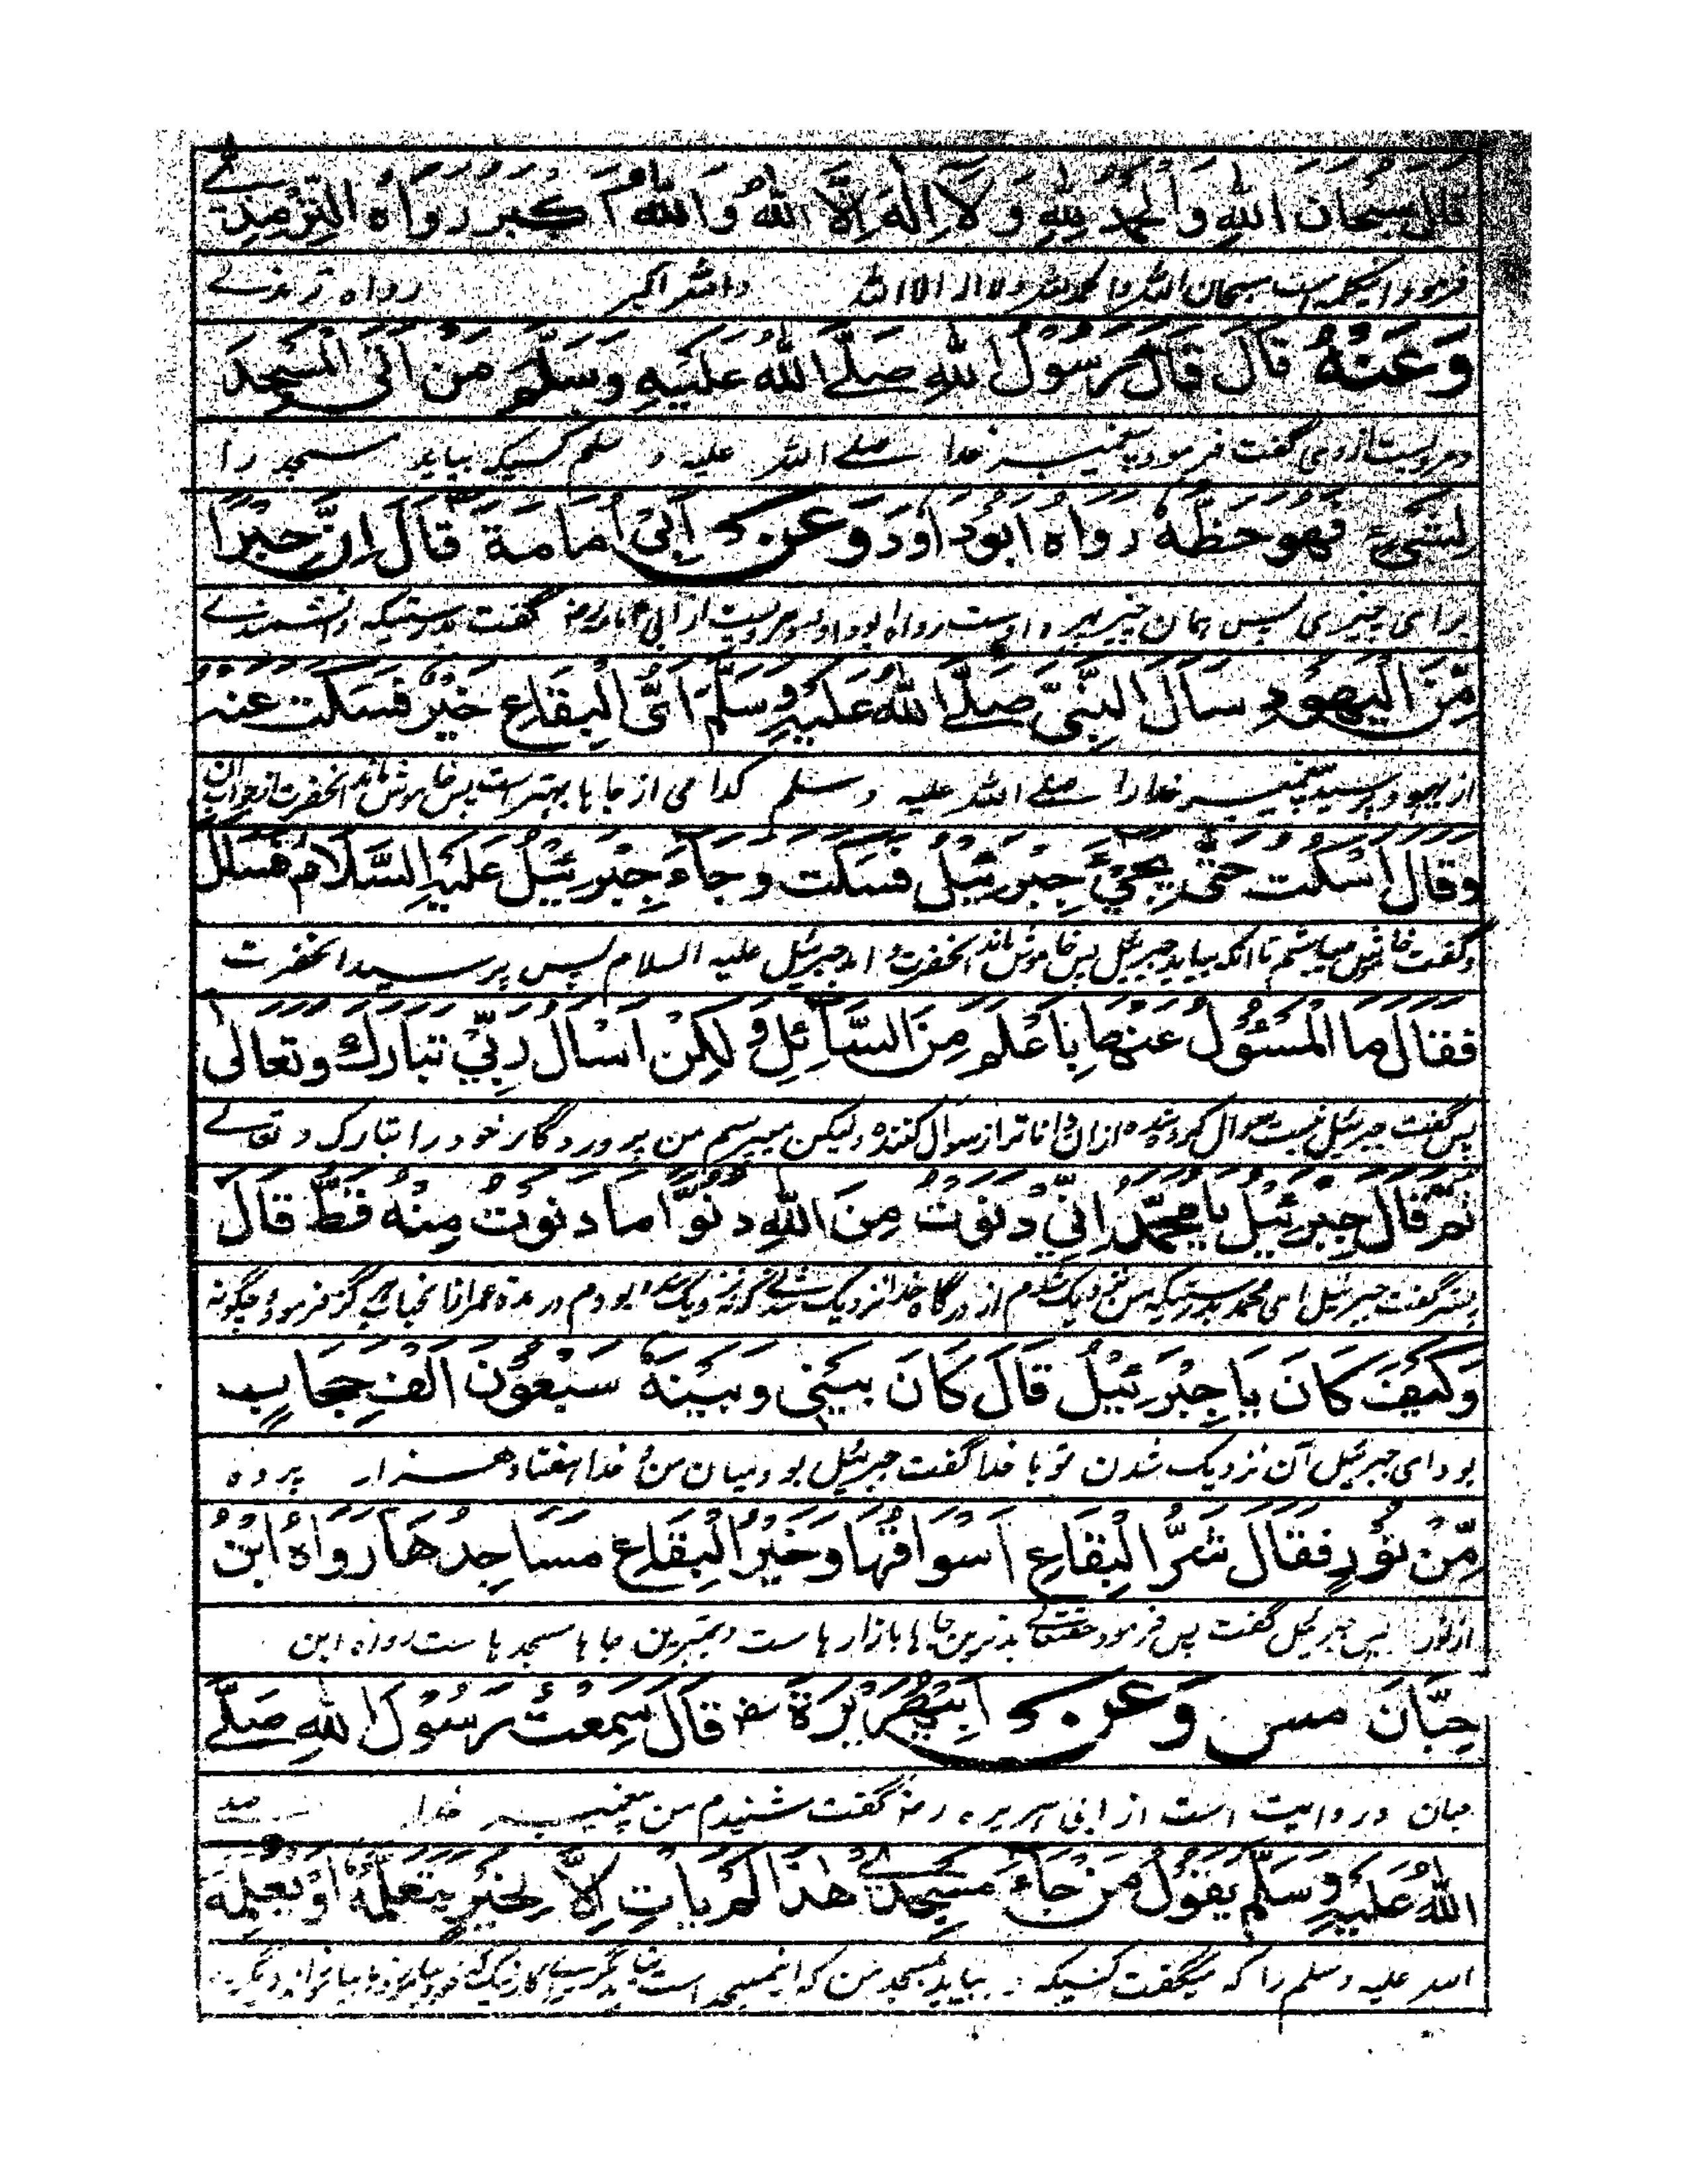 قَالَ سُبْحَانَ اللهِ وَالْحَمْدُ لِلّٰهِ وَلَا اِلٰهَ اِلَّا اللهُ وَاللهُ اَكْبَر رَوَاهُ التِّرْمِذِي
فرمود اینکلمه است سبحان الله والحمد لله ولا اله الا الله والله اکبر رواه ترمذے
وَعَنْهُ قَالَ قَالَ رَسُوْلُ اللهِ صَلَّے اللهُ عَلَيْهِ وَسَلَّمَ مَنْ اَتَى الْمَسْجِدَ
ومرویست ازوی گفت فرمود پیغمبر خدا صلے الله علیه و سلم کسیکه بیاید مسجد را
لِشَیْءٍ فَهُوَ حَظُّهٗ رَوَاهُ اَبُوْدَاوُدَ وَعَنْ اَبِیْ اُمَامَةَ قَالَ اِنَّ حِبْرًا
برای چیزی پس همان چیز بهره اوست رواه ابو داود ومرویست از ابی امامه رض گفت بدرستیکه دانشمندے
مِّنَ الْيَهُوْدِ سَاَلَ النَّبِیَّ صَلَّے اللهُ عَلَيْهِ وَسَلَّمَ اَیُّ الْبِقَاعِ خَيْرٌ فَسَكَتَ عَنْهُ
از یهود پرسید پیغمبر خدا را صلے الله علیه و سلم کدامی از جاها بهتر است پس خاموش ماند آنحضرت از جواب آن
وَقَالَ اَسْكُتُ حَتّٰى يَجِیْءَ جِبْرَئِيْلُ فَسَكَتَ وَجَاءَ جِبْرَئِيْلُ عَلَيْهِ السَّلَامُ فَسَاَلَ
وگفت خاموش میباشم تا آنکه بیاید جبرئیل پس خاموش ماند آنحضرت و آمد جبرئیل علیه السلام پس پرسید آنحضرت
فَقَالَ مَا الْمَسْئُوْلُ عَنْهَا بِاَعْلَمَ مِنَ السَّائِلِ وَلٰكِنْ اَسْاَلُ رَبِّیْ تَبَارَكَ وَتَعَالٰى
پس گفت جبرئیل نیست سوال کرده شده ازان دانا تر از سوال کننده ولیکن میپرسم من پروردگار خود را تبارک و تعالے
ثُمَّ قَالَ جِبْرَئِيْلُ يَا مُحَمَّدُ اِنِّیْ دَنَوْتُ مِنَ اللهِ دُنُوًّا مَا دَنَوْتُ مِنْهُ قَطُّ قَالَ
پستر گفت جبرئیل ای محمد بدرستیکه من نزدیک شدم از درگاه خدا نزدیک شدنے که نزدیک نشده بودم در مدة عمر ازانجناب هرگز فرمود چگونه
وَكَيْفَ كَانَ يَا جِبْرَئِيْلُ قَالَ كَانَ بَيْنِیْ وَبَيْنَهٗ سَبْعُوْنَ اَلْفَ حِجَابٍ
بود ای جبرئیل آن نزدیک شدن تو با خدا گفت جبرئیل بود میان من و خدا هفتاد هزار پرده
مِّنْ نُوْرٍ فَقَالَ شَرُّ الْبِقَاعِ اَسْوَاقُهَا وَخَيْرُ الْبِقَاعِ مَسَاجِدُهَا رَوَاهُ ابْنُ
از نور پس جبرئیل گفت پس فرمود حقتعالے بدترین جاها بازارها ست و بهترین جاها مسجدها ست رواه ابن
حِبَّانَ مس وَعَنْ اَبِیْ هُرَيْرَةَ رض قَالَ سَمِعْتُ رَسُوْلَ اللهِ صَلَّے
حبان و روایت است از ابی هریره رض گفت شنیدم من پیغمبر خدا صلے
اللهُ عَلَيْهِ وَسَلَّمَ يَقُوْلُ مَنْ جَاءَ مَسْجِدِیْ هٰذَا لَمْ يَاْتِ اِلَّا لِخَيْرٍ يَتَعَلَّمُهٗ اَوْ يُعَلِّمُهٗ
الله علیه وسلم را که میگفت کسیکه بیاید بمسجد من که این مسجد است